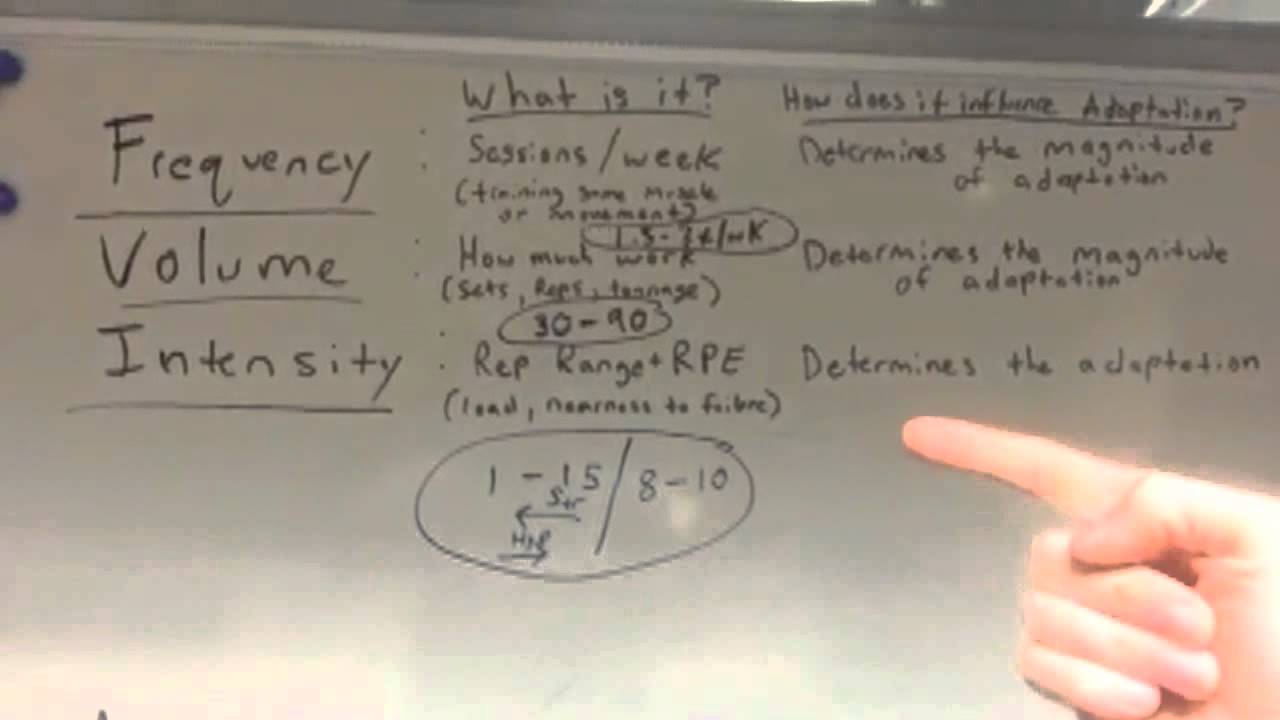 What is it?
How does it influence Adaptation?
Frequency : Sessions/week
(training same muscle
or movement)
Determines the magnitude
of adaptation
Volume : How much work
(sets, Reps, tonnage)
Determines the magnitude
of adaptation
30-90
Intensity : Rep Range + RPE
(load, nearness to failure)
Determines the adaptation
1 - 15 / 8-10
Str
Hyp